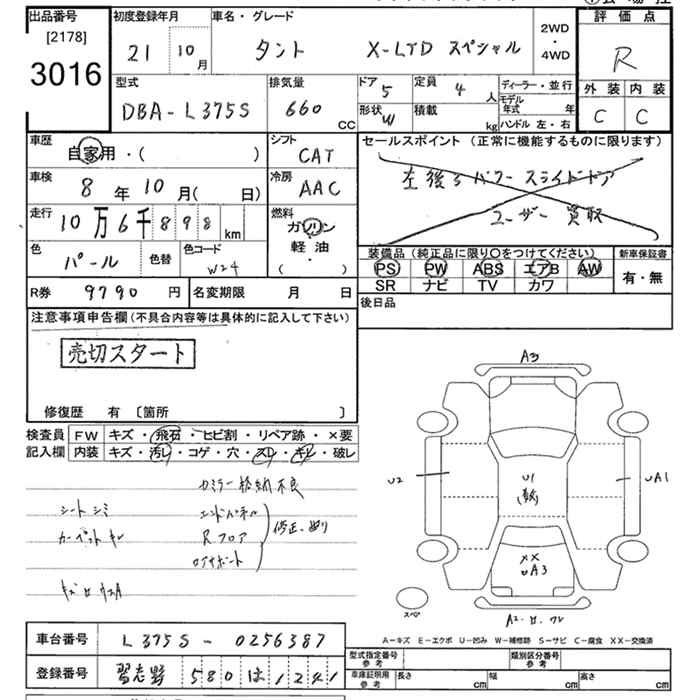 出品番号
[2178]
3016
初度登録年月
21 10月
車名・グレード
タント X-LTD スペシャル
2WD
・
4WD
評価点
R
外装 内装
C C
型式
DBA-L375S
排気量
660 CC
ドア 5
定員 4 人
形状 W
積載 kg
ディーラー・並行
モデル年式 年
ハンドル 左・右
車歴
自家用・( )
シフト
CAT
セールスポイント (正常に機能するものに限ります)
左後ろパワースライドドア
ユーザー買取
車検
8年10月( 日)
冷房
AAC
走行
10万6千898km
燃料
ガソリン
軽油
( ・ )
色
パール
色替
色コード
W24
装備品 (純正品に限り○をつけてください)
PS PW ABS エアB AW
SR ナビ TV カワ
新車保証書
有・無
R券 9790円
名変期限 月 日
後日品
注意事項申告欄 (不具合内容等は具体的に記入して下さい)
売切スタート
修復歴 有 〔箇所 〕
検査員記入欄
FW キズ・飛石・ヒビ割・リペア跡・×要
内装 キズ・汚レ・コゲ・穴・スレ・キレ・破レ
カミラー格納不良
シートシミ
エンドパネル
カーペットキレ
Rフロア
修正、曲り
ロアサポート
A3
U2
U1
UA1
XX
UA3
スペア
A-キズ E-エクボ U-凹み W-補修跡 S-サビ C-腐食 XX-交換済
車台番号 L375S-0256387
登録番号 習志野 580 は 1241
型式指定番号 参考
類別区分番号 参考
車庫証明用 参考
長さ cm
幅 cm
高さ cm